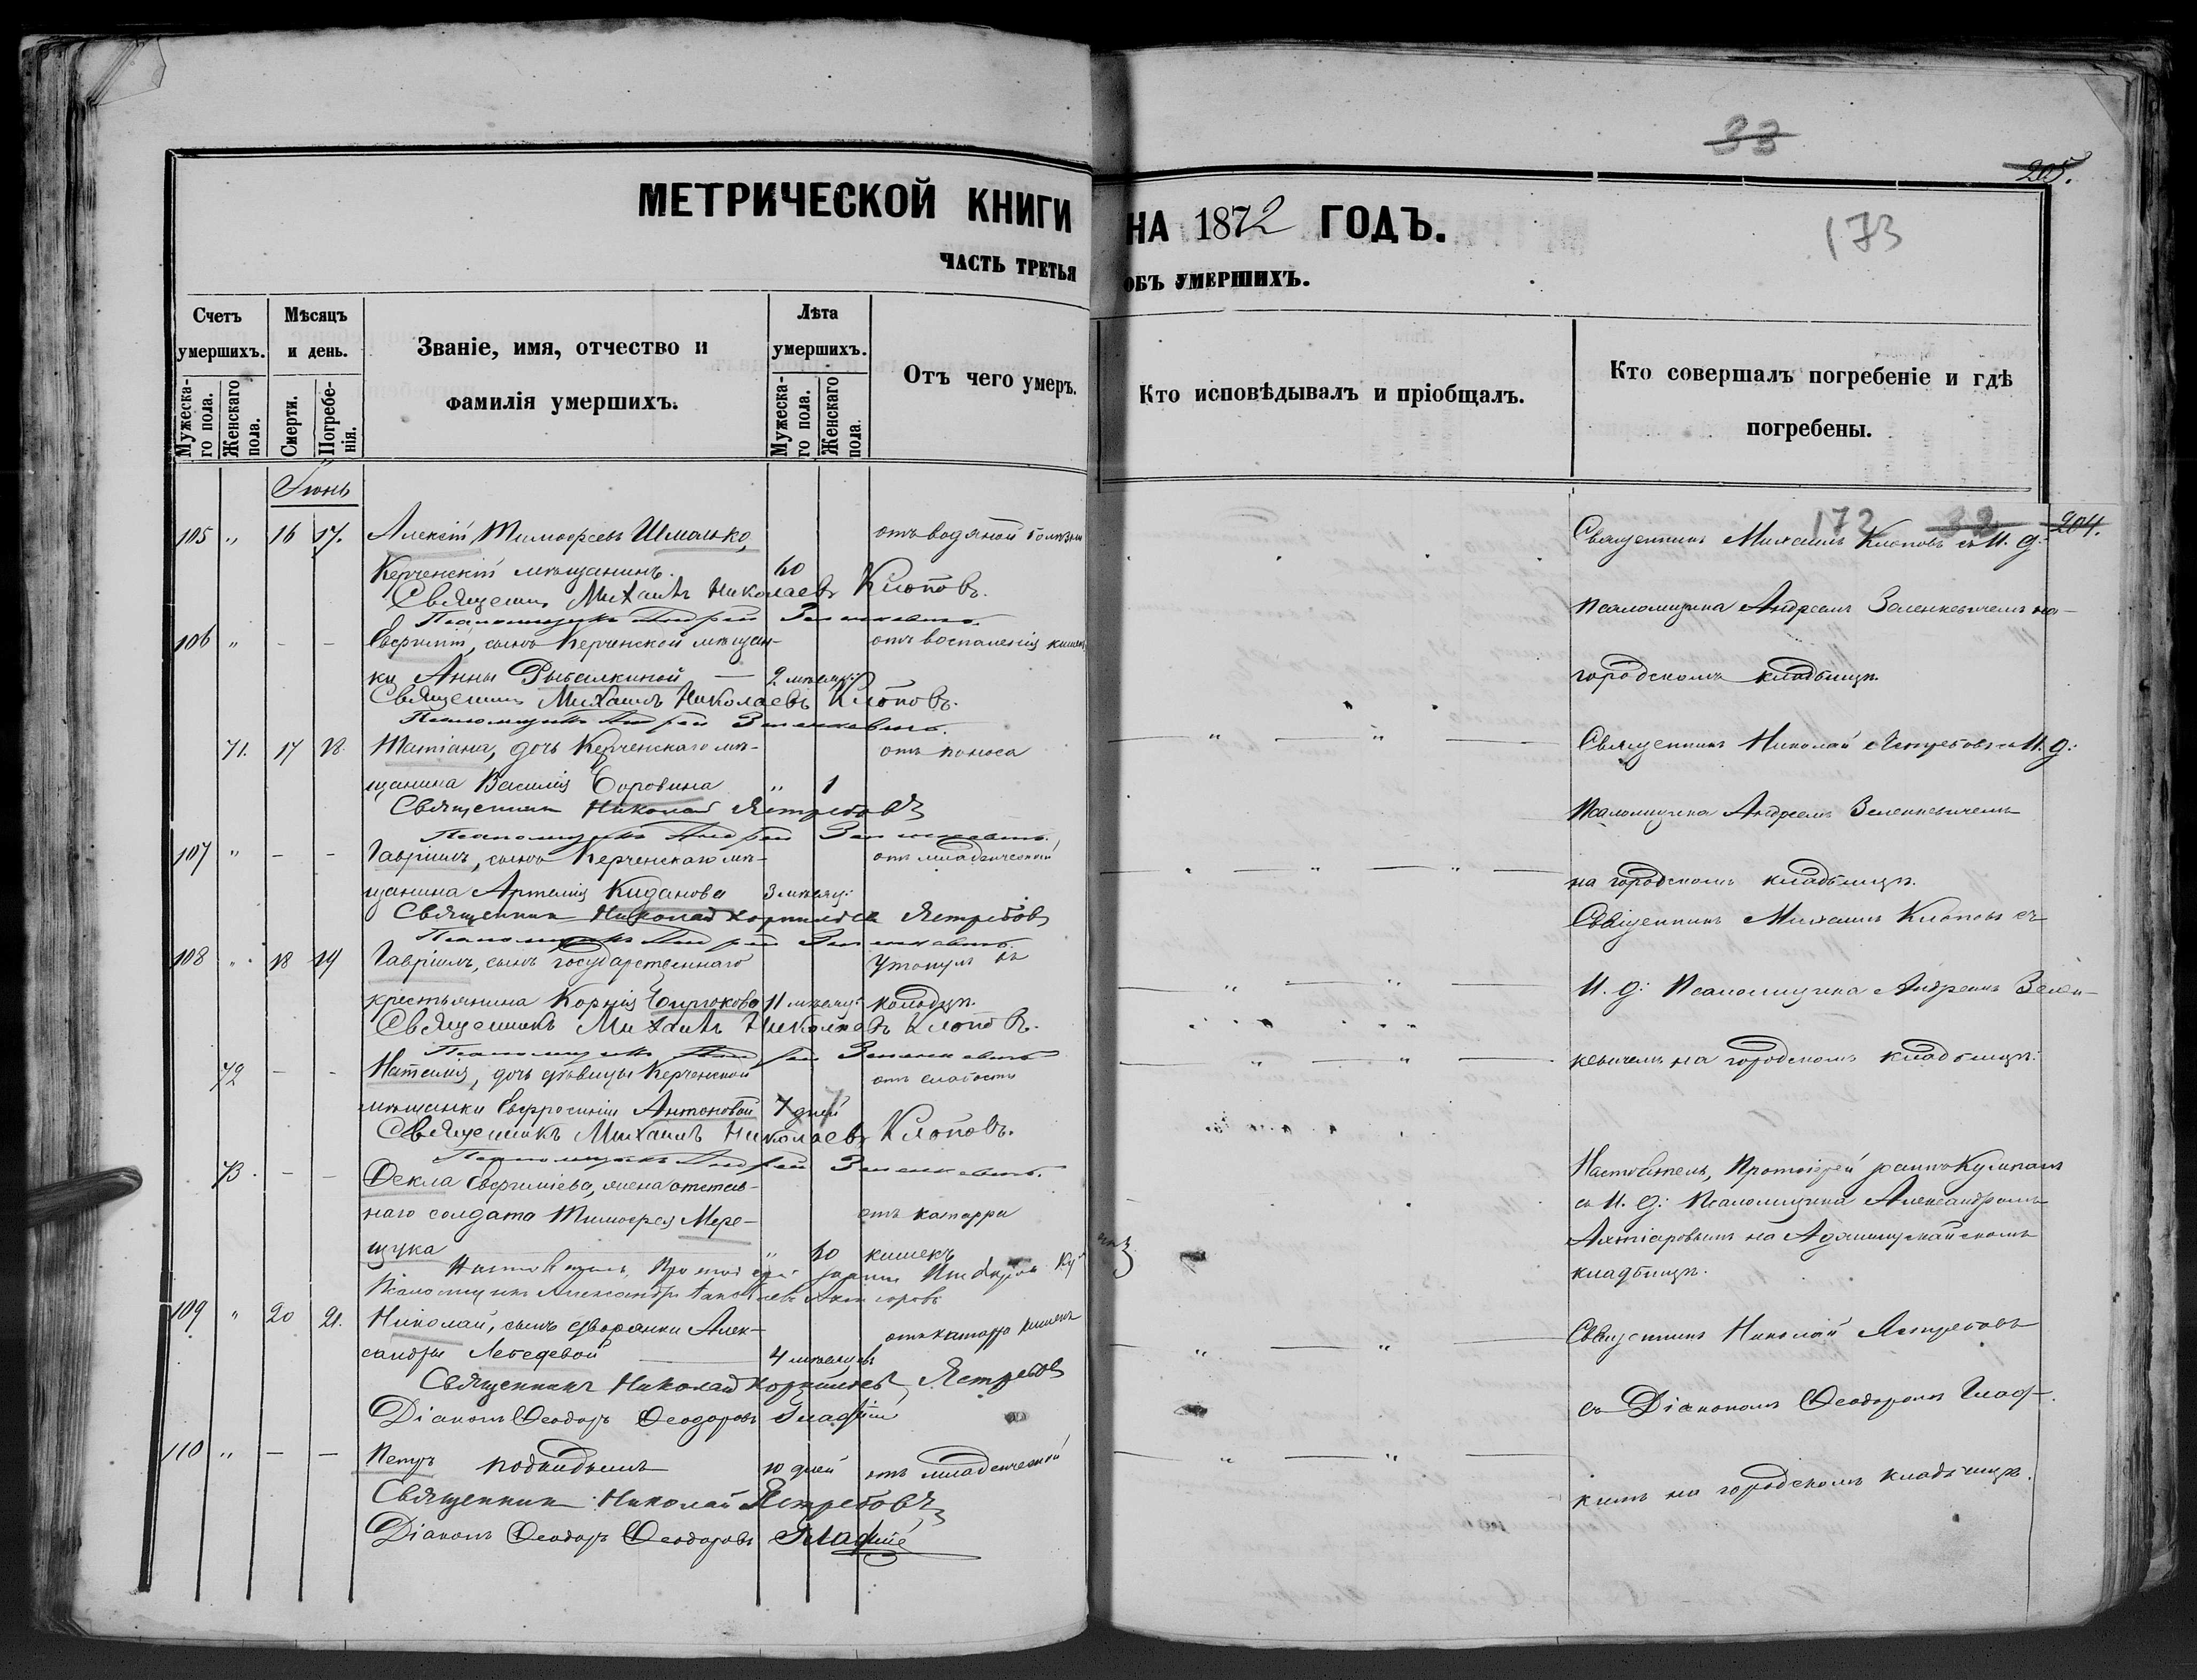 МЕТРИЧЕСКОЙ КНИГИ
ЧАСТЬ ТРЕТЬЯ
Счетъ умершихъ.
Мужеска-го пола.
Женскаго пола.
Мѣсяцъ и день.
Смерти.
Погребе-нія.
Званіе, имя, отчество и
фамилія умершихъ.
Лѣта умершихъ.
Мужеска-го пола.
Женскаго пола.
Отъ чего умеръ.
Іюнь
105 „ 16 17. Алексій Тимофеевъ Шмалько, отъ водяной болѣзни
Керченскій мѣщанинъ. 60
Священникъ Михаилъ Николаевъ Клоповъ.
Псаломщикъ Андрей Зеленкевичъ.
106 „ – – сынъ Керченской мѣщан-
отъ воспаленія кишекъ
ки Анны Рыбалкиной — 2 мѣсяц:
Священникъ Михаилъ Николаевъ Клоповъ.
Псаломщикъ Андрей Зеленкевичъ.
71. 17 18. Татіана, дочь Керченскаго мѣ- отъ поноса
щанина Василія Боровина „ 1
Священникъ Николай Ястребовъ
Псаломщикъ Андрей Зеленкевичъ.
107 „ – – Гавріилъ, сынъ Керченскаго мѣ- отъ младенческой
щанина Артемія Киданова 3 мѣсяц:
Священникъ Николай Корнильевъ Ястребовъ
Псаломщикъ Андрей Зеленкевичъ.
108 „ 18 19 Гавріилъ, сынъ государственнаго Утонулъ въ
крестьянина Корнія Бирюкова 11 мѣсяц: колодцѣ.
Священникъ Михаилъ Николаевъ Клоповъ.
Псаломщикъ Андрей Зеленкевичъ
72 – – Наталія, дочь дѣвицы Керченской отъ слабости
мѣщанки Евфросиніи Антоновой 7 дней
Священникъ Михаилъ Николаевъ Клоповъ.
Псаломщикъ Андрей Зеленкевичъ.
73. – – Ѳекла жена отстав-
наго солдата Тимофея Мере- отъ катарра
щука „ 60 кишекъ
Настоятель, Протоіерей Іоаннъ
Псаломщикъ Александръ
109 „ 20 21. Николай, сынъ дворянки Алек- отъ катарра кишекъ
сандры Лебедевой — 4 мѣсяцевъ
Священникъ Николай Корнильевъ Ястребовъ
Діаконъ Ѳеодоръ Ѳеодоровъ Гладкій
110 „ – – Петръ подкидышъ 10 дней отъ младенческой
Священникъ Николай Ястребовъ
Діаконъ Ѳеодоръ Ѳеодоровъ Гладкій
33
205.
НА 1872 ГОДЪ.
173
ОБЪ УМЕРШИХЪ.
Кто исповѣдывалъ и пріобщалъ.
Кто совершалъ погребеніе и гдѣ
погребены.
172 32 204.
Священникъ Михаилъ Клоповъ съ И. д:
Псаломщика Андреемъ Зеленкевичемъ на
городскомъ кладбищѣ.
Священникъ Николай Ястребовъ съ И. д:
Псаломщика Андреемъ Зеленкевичемъ
на городскомъ кладбищѣ.
Священникъ Михаилъ Клоповъ съ
И. д: Псаломщика Андреемъ Зелен-
кевичемъ на городскомъ кладбищѣ.
Настоятель, Протоіерей Іоаннъ
съ И. д: Псаломщика Александромъ
Ахтіаровымъ на Аджимушкайскомъ
кладбищѣ.
Священникъ Николай Ястребовъ
съ Діакономъ Ѳеодоромъ Глад-
кимъ на городскомъ кладбищѣ.